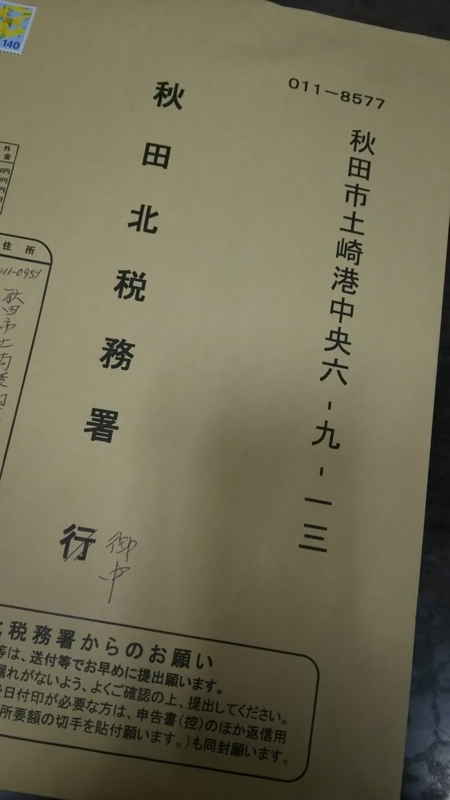 011-8577
秋田市土崎港中央六-九-一三
秋田北税務署
行
御中
140
外
金
住所
011-0951
秋田市土
税務署からのお願い
等は、送付等でお早めに提出願います。
漏れがないよう、よくご確認の上、提出してください。
日付印が必要な方は、申告書(控)のほか返信用
所要額の切手を貼付願います。)も同封願います。